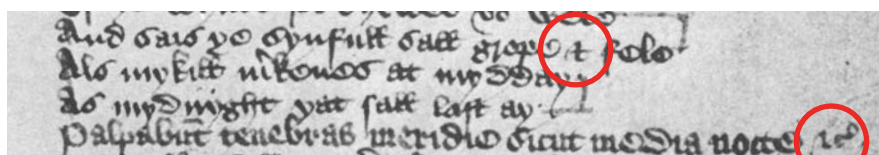 And sais ye synfull sall grope & fele
Als mykill mirknes at mydday
As mydnyght yat sall last ay
Palpabunt tenebras meridie sicut media nocte &c